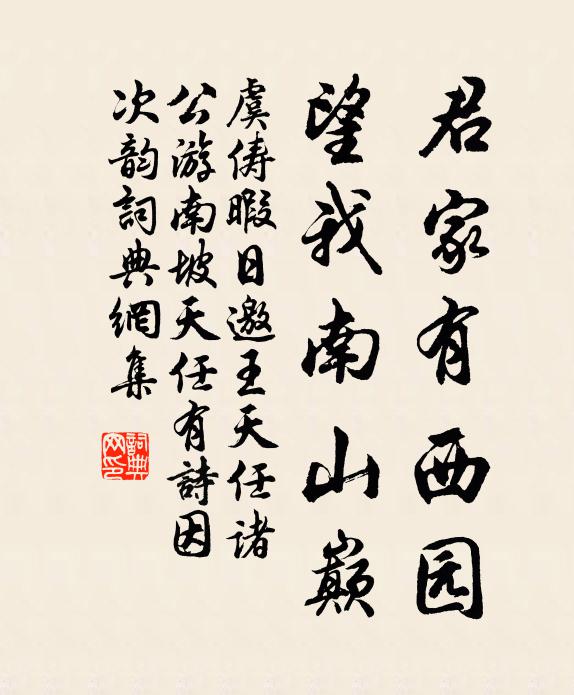 君家有西园
望我南山巅
虞俦暇日邀王天任诸
公游南坡天任有詩因
次韵詞典網集
詞典網印